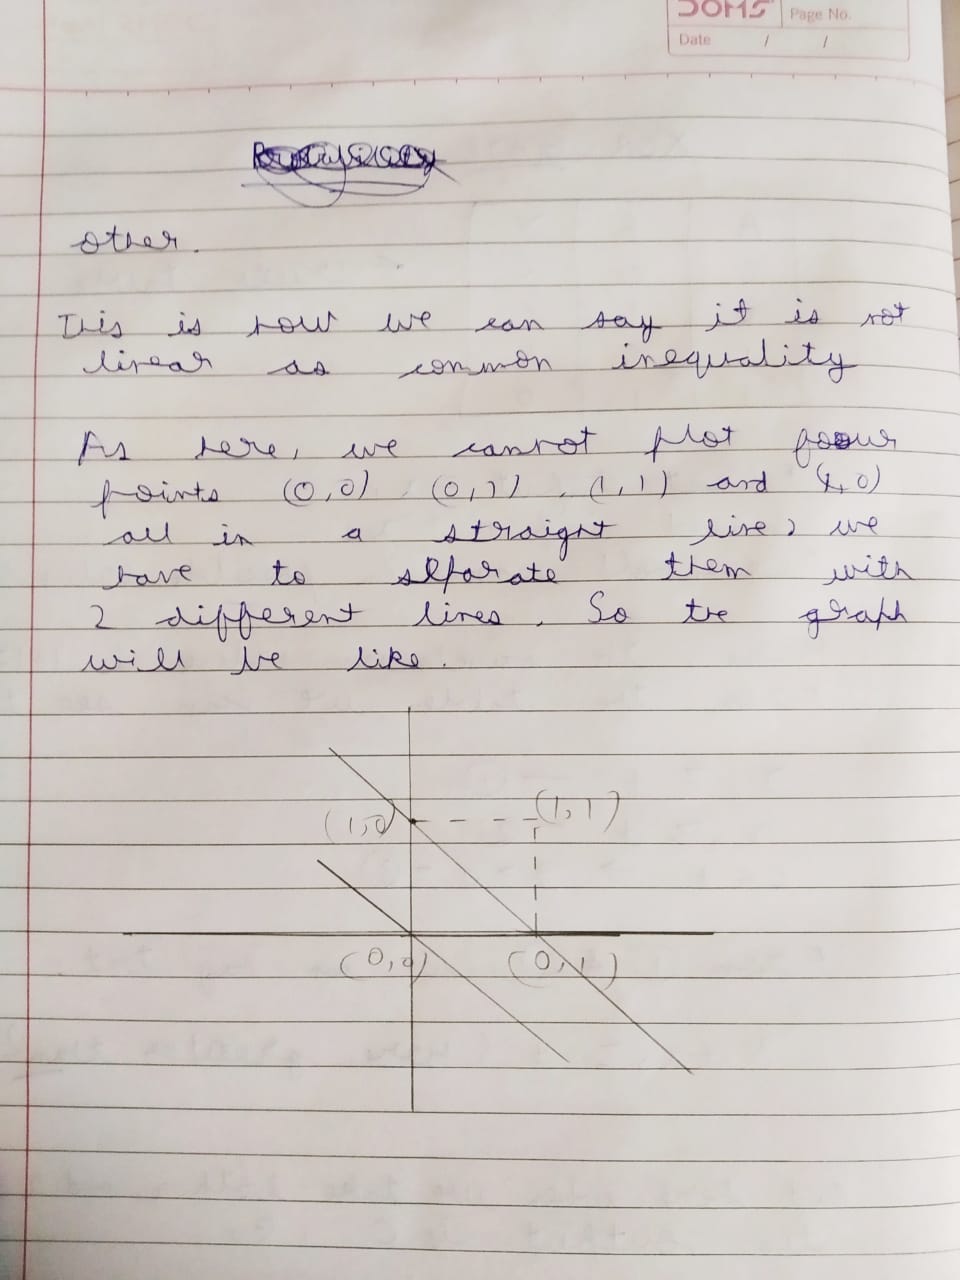 DOMS
Page No.
Date / /
other.
This is how we can say it is not
linear as common inequality
As here, we cannot plot four
points (0,0), (0,1), (1,1) and (1,0)
all in a straight line, we
have to separate them with
2 different lines. So the graph
will be like.
(1,0) (1,1)
(0,0) (0,1)